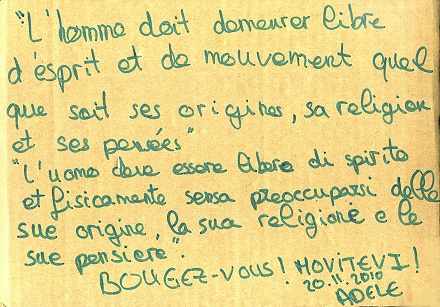 "L'homme doit demeurer libre
d'ésprit et de mouvement quel
que soit ses origines, sa religion
et ses pensées"
"L'uomo deve essere libero di spirito
et fisicamente sensa preoccuparsi delle
sue origine, la sua religione e le
sue pensiere".
BOUGEZ-VOUS! MOVITEVI!
20.11.2010
ADELE